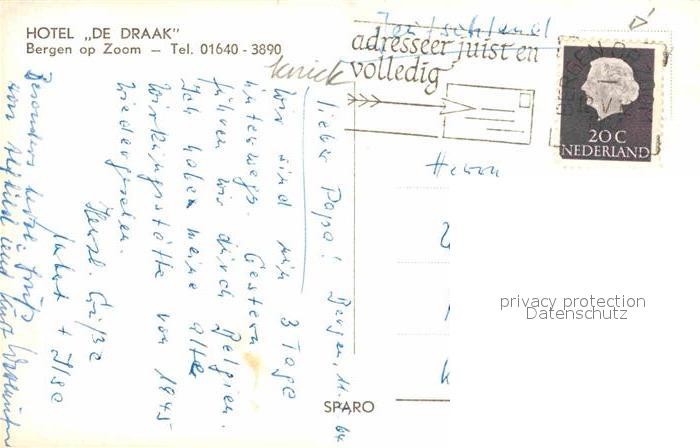 HOTEL „DE DRAAK"
Bergen op Zoom — Tel. 01640 - 3890
Deutschland
adresseer juist en
volledig
20 C
NEDERLAND
Herrn
privacy protection
Datenschutz
SPARO
Bergen, 11. 64
Lieber Papa!
Wir sind nun 3 Tage
unterwegs. Gestern
fuhren wir durch Belgien.
Ich habe meine alte
Wirkungsstätte von 1945
wiedergesehen.
Herzl. Grüße
+ Ilse
Besonders herzl. Grüße
von und